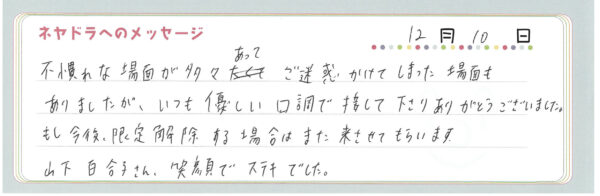 ネヤドラへのメッセージ 12月10日
不慣れな場面が多々あって ご迷惑かけてしまった場面も
ありましたが、いつも優しい口調で接して下さりありがとうございました。
もし今後、限定解除する場合はまた来させてもらいます
山下百合子さん、笑顔でステキでした。